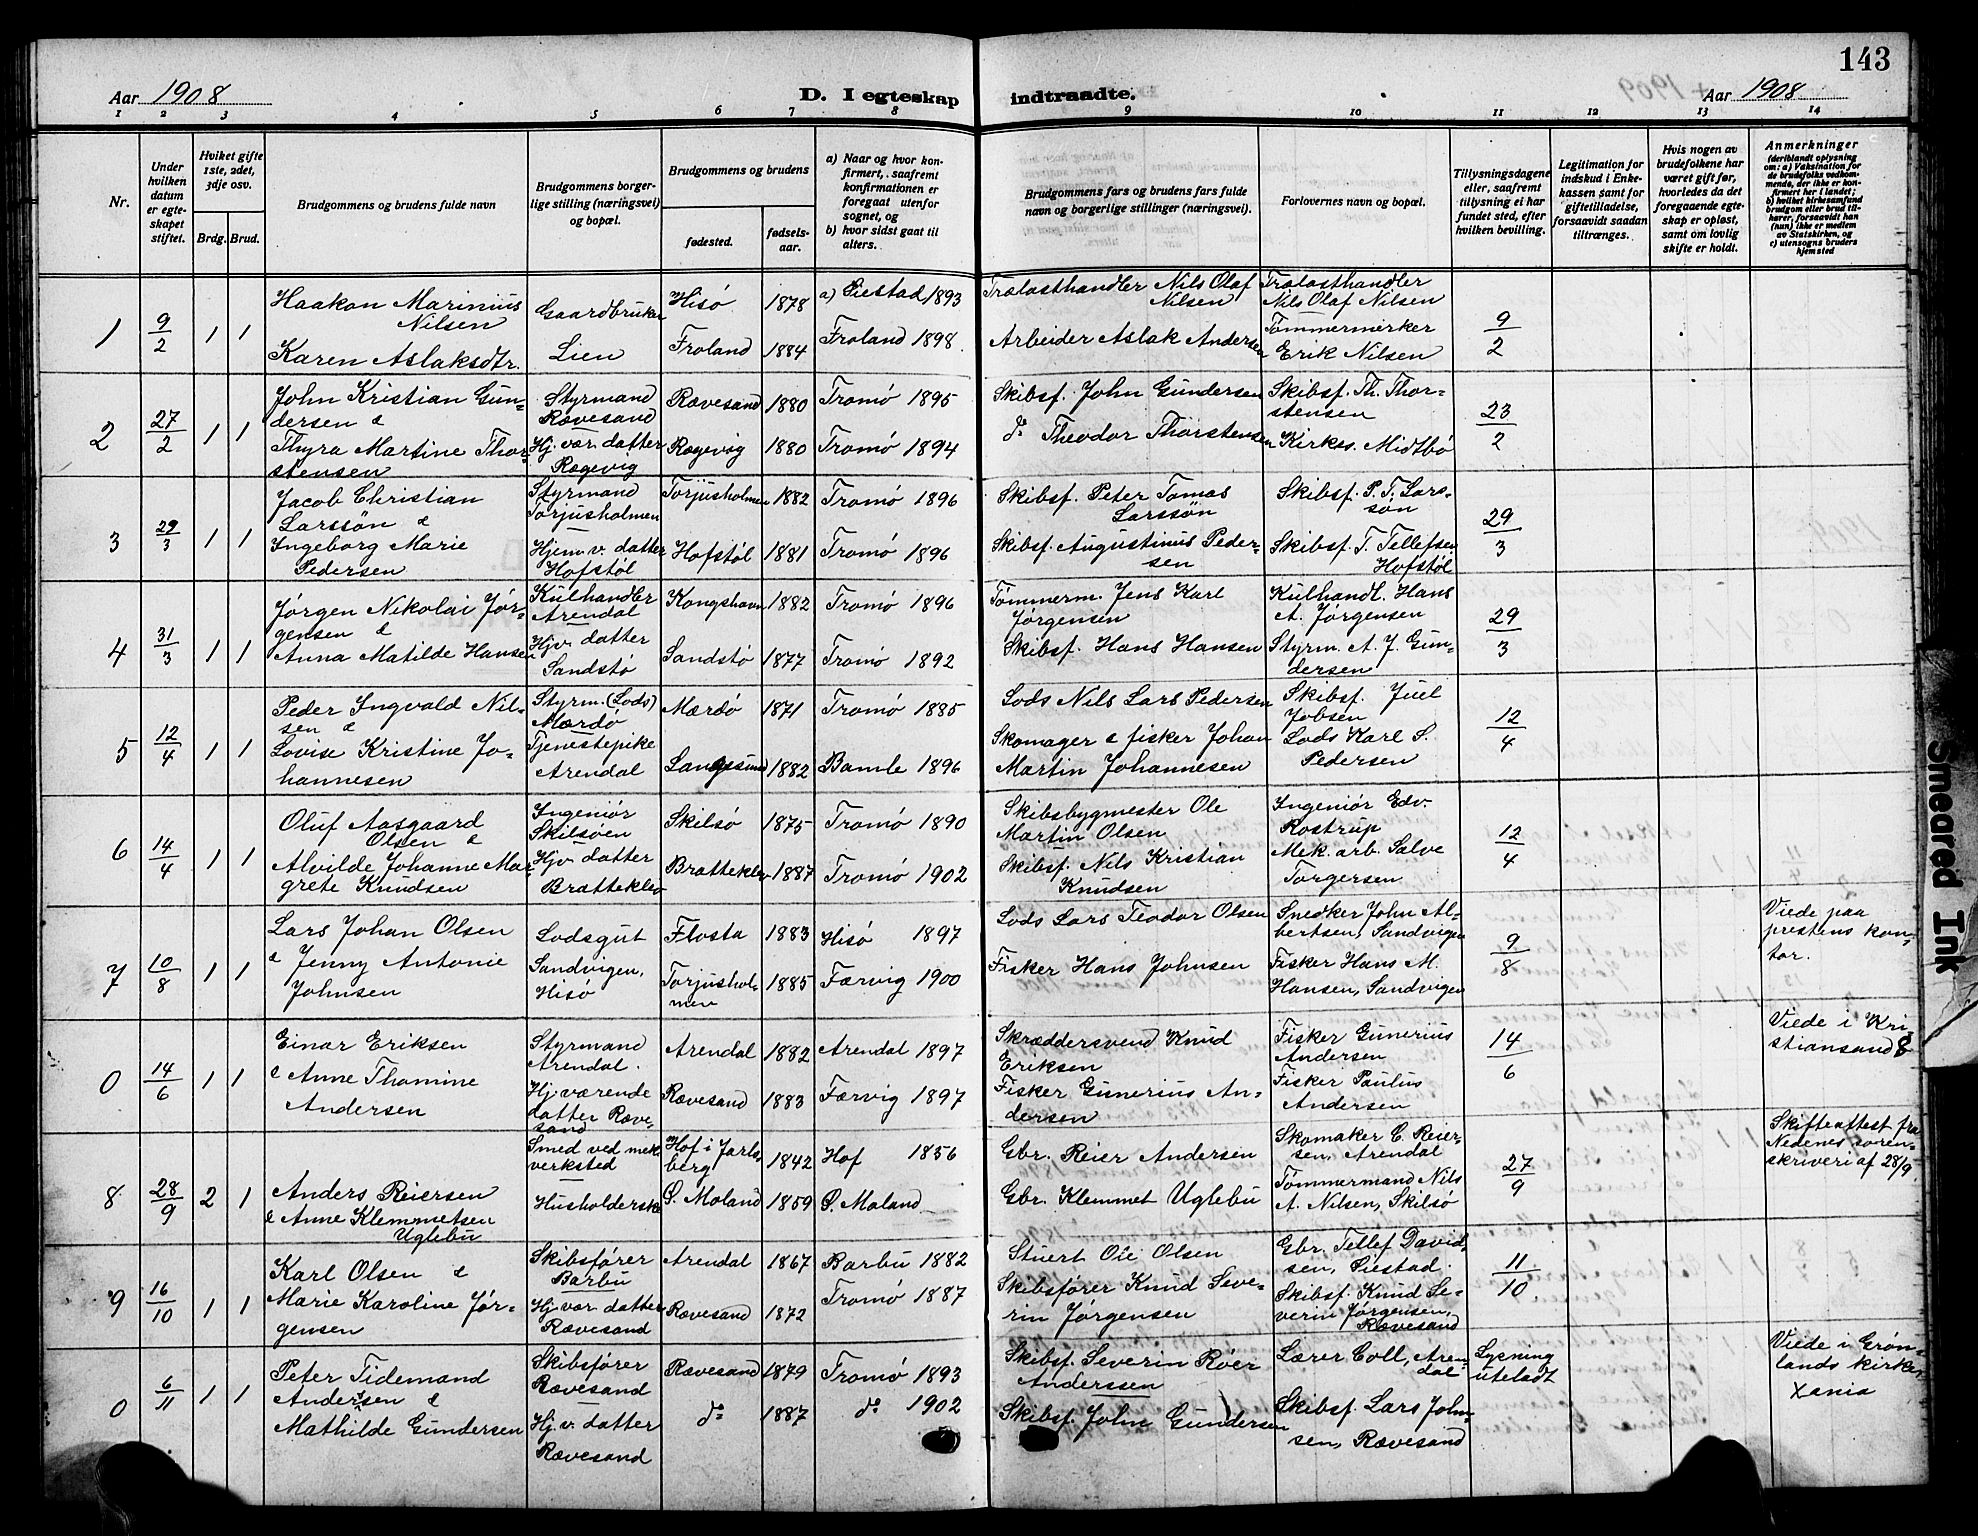 143
Aar 1908
D. I egteskap indtraadte.
Aar 1908
1 2 3 4 5 6 7 8 9 10 11 12 13 14
Nr.
Under hvilken datum er egteskapet stiftet.
Hviket gifte 1ste, 2det, 3dje osv.
Brdg. Brud.
Brudgommens og brudens fulde navn
Brudgommens borgerlige stilling (næringsvei) og bopæl.
Brudgommens og brudens
fødested.
fødselsaar.
a) Naar og hvor konfirmert, saafremt konfirmationen er foregaat utenfor sognet, og
b) hvor sidst gaat til alters.
Brudgommens fars og brudens fars fulde navn og borgerlige stillinger (næringsvei).
Forlovernes navn og bopæl.
Tillysningsdagene eller, saafremt tillysning ei har fundet sted, efter hvilken bevilling.
Legitimation for indskud i Enkekassen samt for giftetilladelse, forsaavidt saadan tiltrænges.
Hvis nogen av brudefolkene har været gift før, hvorledes da det foregaaende egteskap er opløst, samt om lovlig skifte er holdt.
Anmerkninger
(deriblandt oplysning om: a) Vaksination for de brudefolks vedkommende, der ikke er konfirmert her i landet; b) hvilket kirkesamfund brudgom eller brud tilhører, forsaavidt han (hun) ikke er medlem av Statskirken, og c) utensogns bruders hjemsted
1 9/2 1 1 Haakon Marinius Nilsen Gaardbruker Hisø 1878 a) Øiestad 1893 Trælasthandler Nils Olaf Nilsen Trælasthandler Nils Olaf Nilsen 9/2
Karen Aslaksdtr. Lien Froland 1884 Froland 1898 Arbeider Aslak Andersen Tømmermerker Erik Nilsen
2 27/2 1 1 John Kristian Gundersen & Styrmand Rævesand Rævesand 1880 Tromø 1895 Skibsf. John Gundersen Skibsf. Th. Thorstensen 23/2
Thyra Martine Thorstensen Hj. vær. datter Rægevig Rægevig 1880 Tromø 1894 do Theodor Thorstensen Kirkes. Midtbø
3 29/3 1 1 Jacob Christian Larssøn & Styrmand Torjusholmen Torjusholmen 1882 Tromø 1896 Skibsf. Peter Tomas Larssøn Skibsf. P. T. Larssøn 29/3
Ingeborg Marie Pedersen Hjem v. datter Hofstøl Hofstøl 1881 Tromø 1896 Skibsf. Augustinus Pedersen Skibsf. T. Tellefsen Hofstøl
4 31/3 1 1 Jørgen Nikolai Jørgensen & Kulhandler Arendal Kongshavn 1882 Tromø 1896 Tømmerm. Jens Karl Jørgensen Kulhandl. Hans A. Jørgensen 29/3
Anna Matilde Hansen Hjv. datter Sandstø Sandstø 1877 Tromø 1892 Skibsf. Hans Hansen Styrm. A. J. Gundersen
5 12/4 1 1 Peder Ingvald Nilsen & Styrm. (Lods) Mærdø Mærdø 1871 Tromø 1885 Lods Nils Lars Pedersen Skibsf. Juel Jobsen 12/4
Lovise Kristine Johannesen Tjenestepike Arendal Langesund 1882 Bamle 1896 Skomager & fisker Johan Martin Johannesen Lods Karl S. Pedersen
6 14/4 1 1 Oluf Aasgaard Olsen & Ingeniør Skilsøen Skilsø 1875 Tromø 1890 Skibsbygmester Ole Martin Olsen Ingeniør Edv. Rostrup 12/4
Alvilde Johanne Margrete Knudsen Hjv. datter Bratteklev Bratteklev 1887 Tromø 1902 Skibsf. Nils Kristian Knudsen Mek. arb. Salve Torgersen
7 10/8 1 1 Lars Johan Olsen Lodsgut Flosta 1883 Hisø 1897 Lods Lars Teodor Olsen Snedker John Albertsen, Sandvigen 9/8 Viede paa prestens kontor.
& Jenny Antonie Johnsen Sandvigen, Hisø Torjusholmen 1885 Færvig 1900 Fisker Hans Johnsen Fisker Hans M. Hansen, Sandvigen
0 14/6 1 1 Einar Eriksen Styrmand Arendal. Arendal 1882 Arendal 1897 Skræddersvend Knud Eriksen Fisker Gunerius Andersen 14/6 Viede i Kristiansand S
& Anne Thomine Andersen Hj. værende datter Rævesand Rævesand 1883 Færvig 1897 Fisker Gunerius Andersen Fisker Paulus Andersen
8 28/9 2 1 Anders Reiersen Smed ved mek verksted Hof i Jarlsberg 1842 Hof 1856 Gbr. Reier Andersen Skomaker C. Reiersen, Arendal 27/9 Skifteattest fra Nedenes sorenskriveri af 28/9
& Anne Klemmetsen Uglebu Husholdersk Ø. Moland 1859 Ø. Moland Gbr. Klemmet Uglebu Tømmermand Nils A. Nilsen, Skilsø
9 16/10 1 1 Karl Olsen & Skibsfører Barbu Arendal 1867 Barbu 1882 Stuert Ole Olsen Gbr. Tellef Davidsen, Øiestad. 11/10.
Marie Karoline Jørgensen Hj. vær. datter Rævesand Rævesand 1872 Tromø 1887 Skibsfører Knud Severin Jørgensen Skibsf. Knud Severin Jørgensen, Rævesand
0 6/11 1 1 Peter Tidemand Anderssen & Skibsfører Rævesand Rævesand 1879 Tromø 1893 Skibsf. Severin Roer Anderssen Lærer Coll, Arendal Lysning uteladt Viede i Grønlands kirke, Xania
Mathilde Gundersen Hj. v. datter Rævesand do 1887 do 1902 Skibsf. John Gundersen Skibsf. Lars Johnsen, Rævesand
Smeared Ink